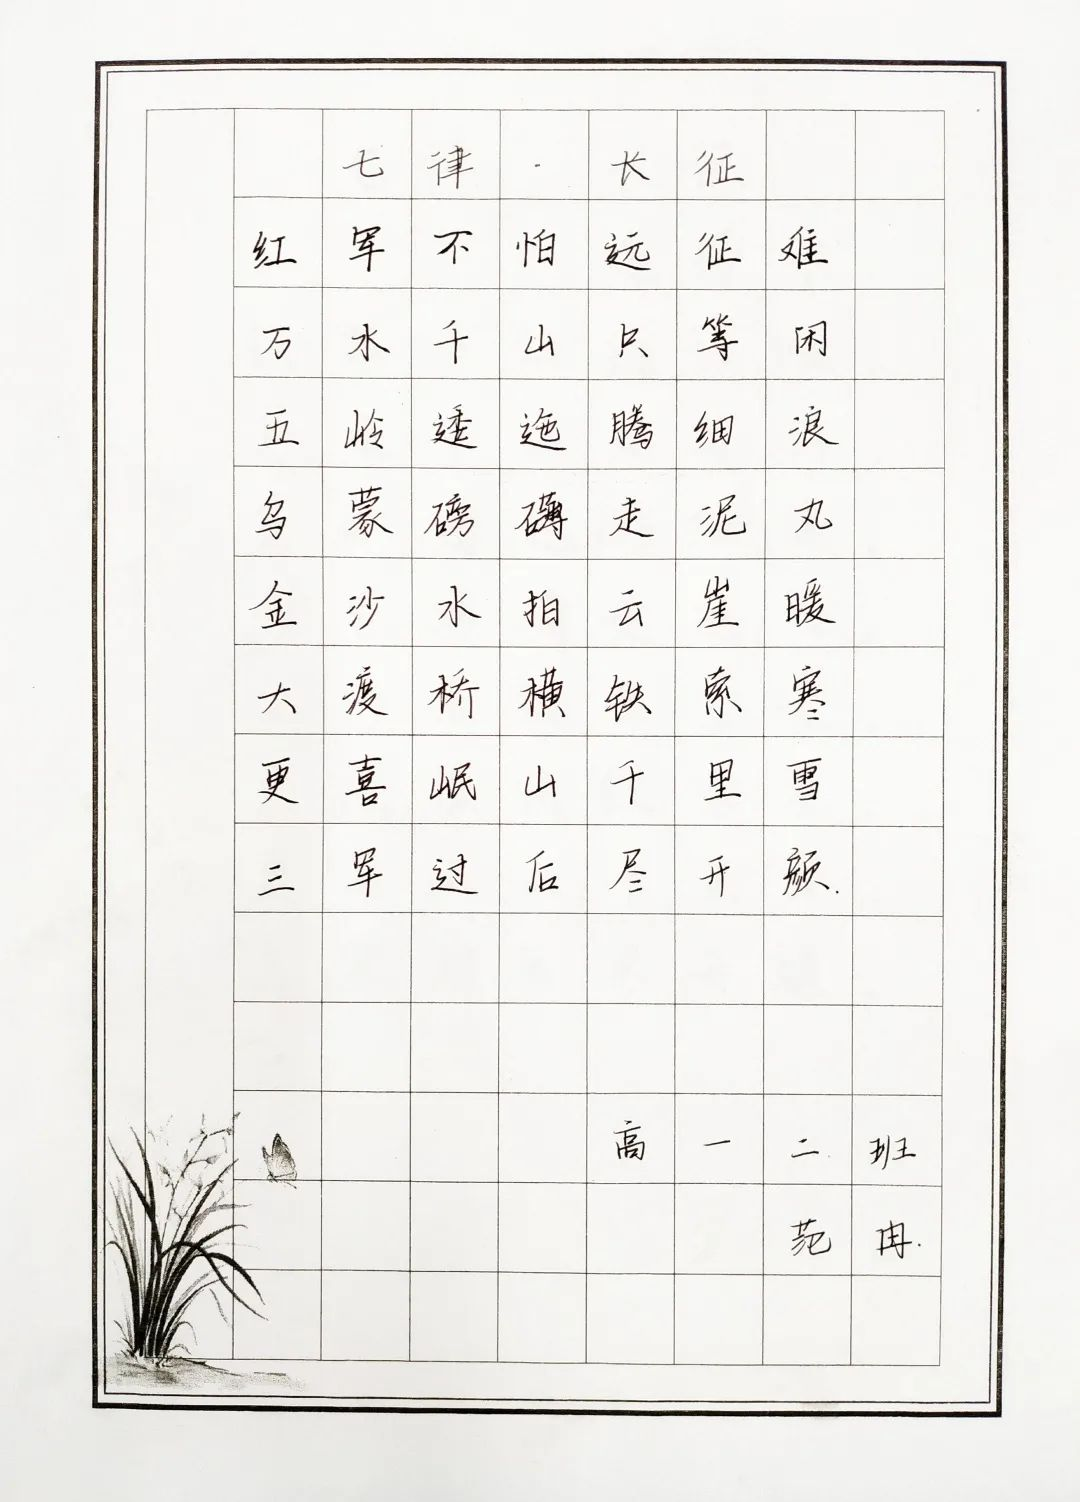 七律·长征
红军不怕远征难
万水千山只等闲
五岭逶迤腾细浪
乌蒙磅礴走泥丸
金沙水拍云崖暖
大渡桥横铁索寒
更喜岷山千里雪
三军过后尽开颜.
高一二班
范冉.